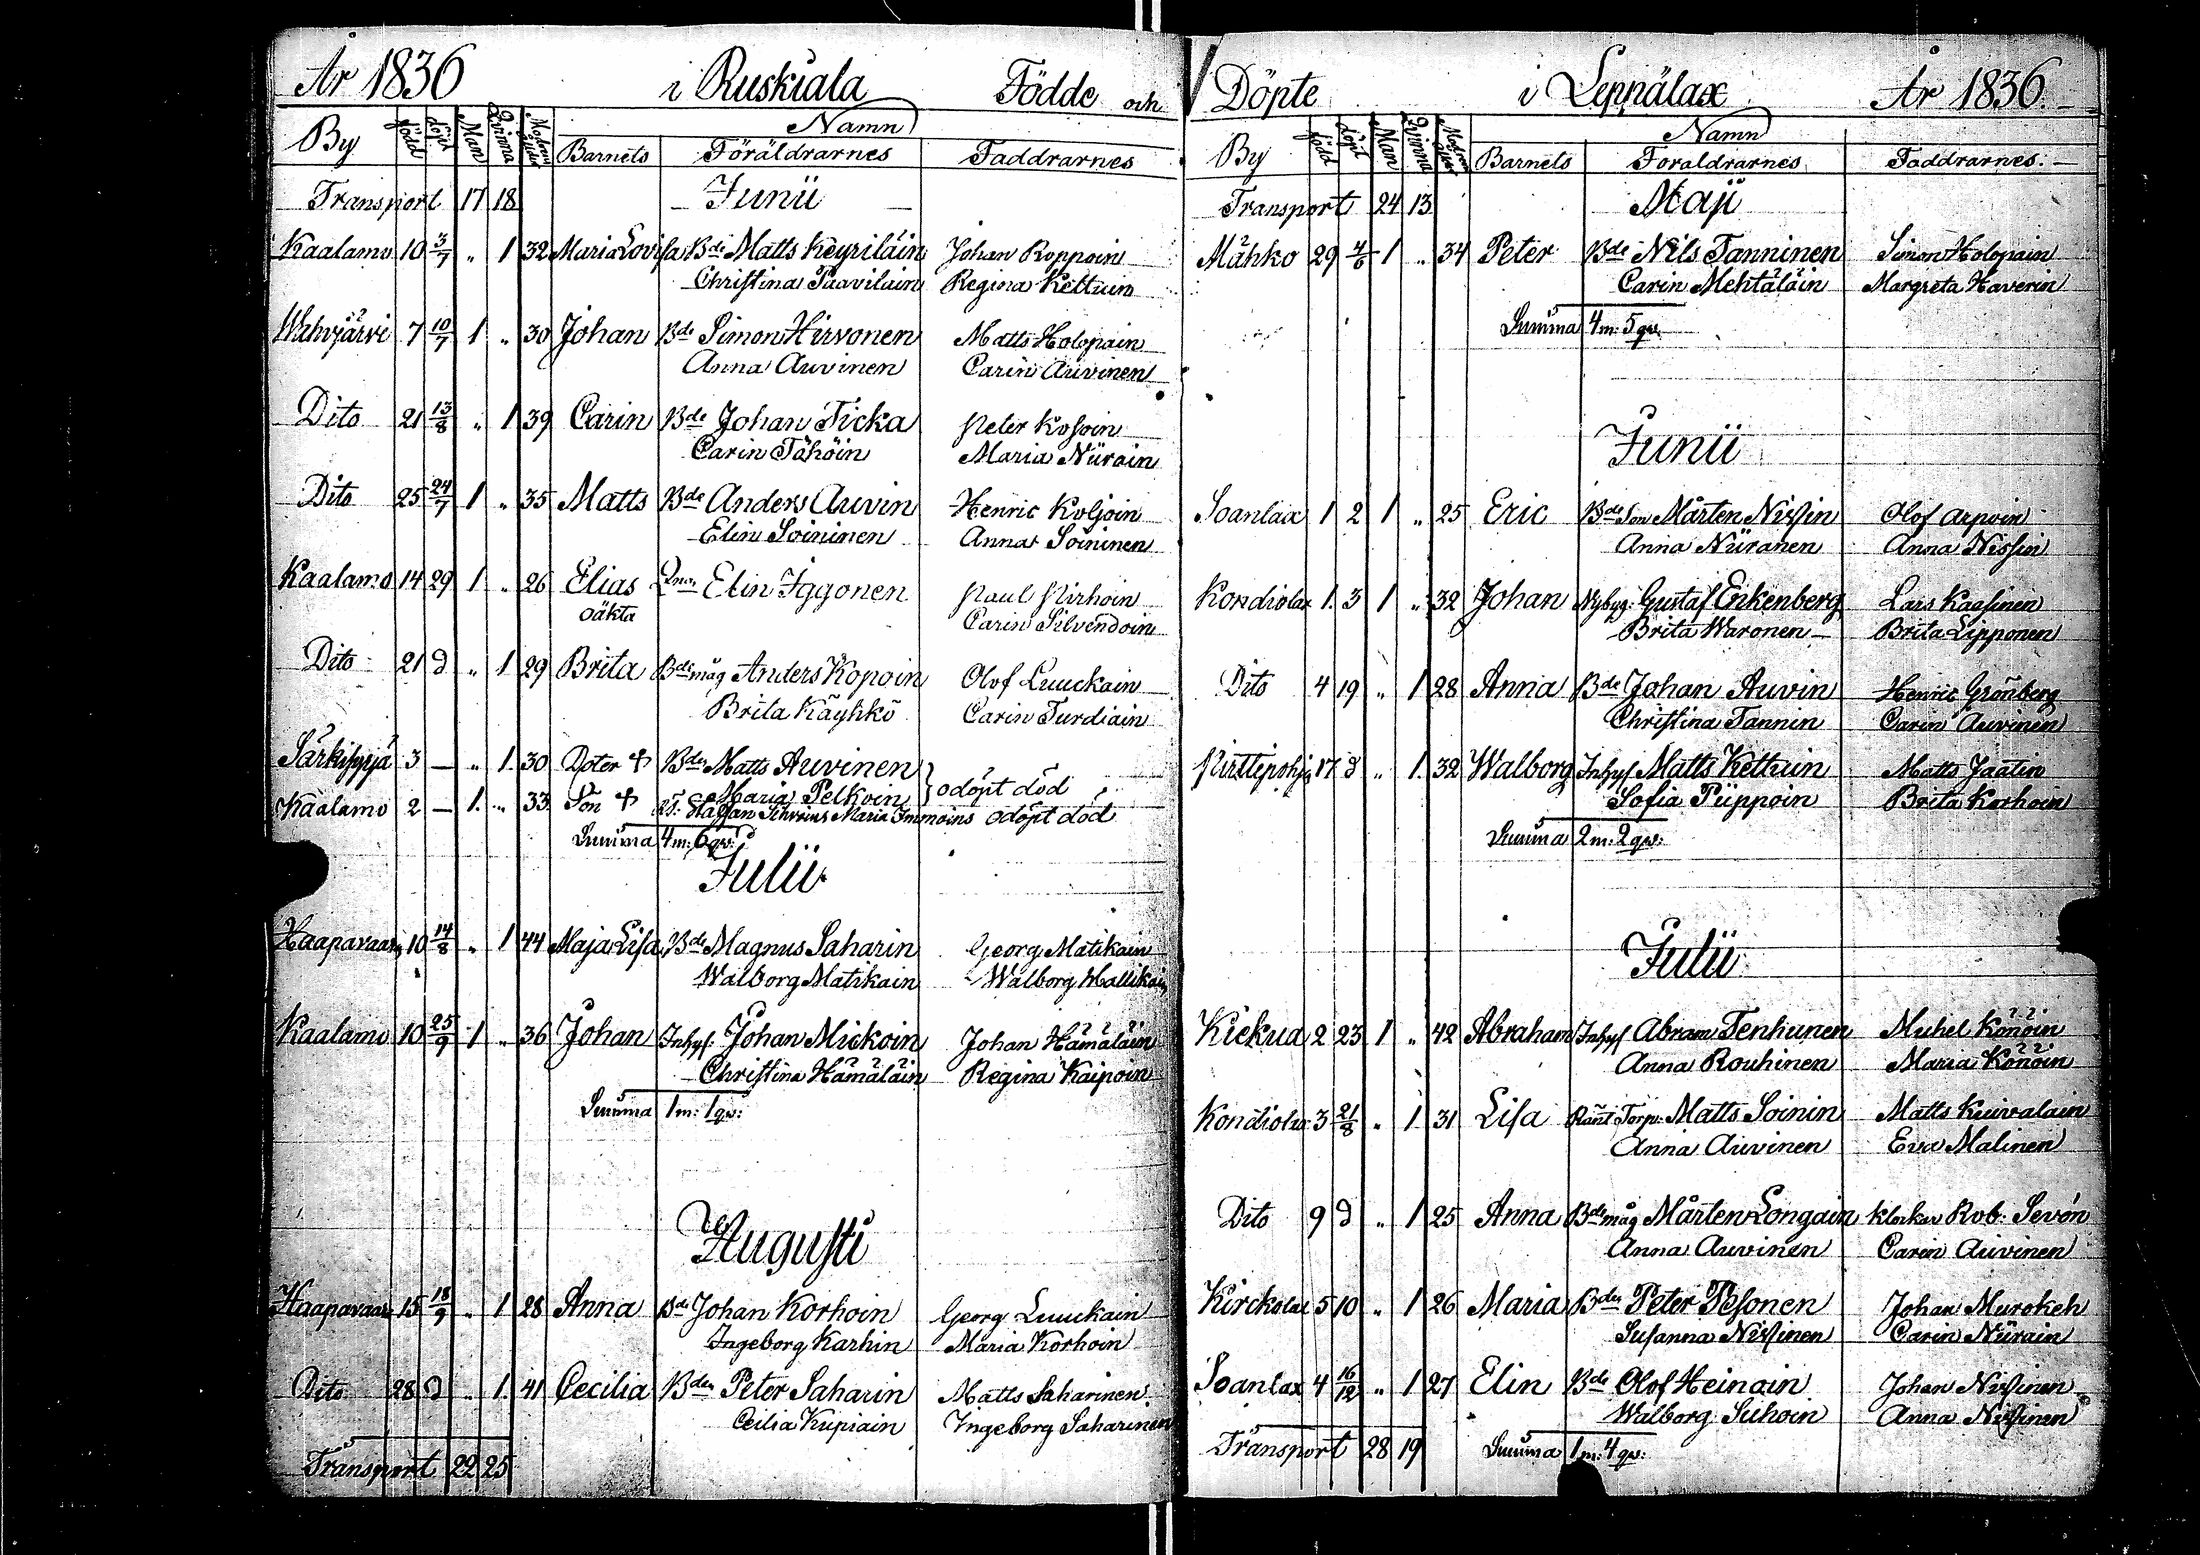 År 1836 i Ruskiala Födde och
By född döpt Man Qvinna Moders ålder Namn
Barnets Föräldrarnes Faddrarnes
Transport 17 18 Junii
Kaalamo 10 3/7 " 1 32 Maria Lovisa Bde Matts Keyriläin Johan Roppoin
Christina Paavilain Regina Kettuin
Wahvjärvi 7 10/7 1 " 30 Johan Bde Simon Hirvonen Matts Holopain
Anna Auvinen Carin Auvinen
Dito 21 13/8 " 1 39 Carin Bde Johan Ticka Peter Kosoin
Carin Tähöin Maria Niirain
Dito 25 24/7 1 " 35 Matts Bde Anders Auvin Henric Koljoin
Elin Soininen Anna Soininen
Kaalamo 14 29 1 " 26 Elias Qnan Elin Iggonen Paul Pirhoin
oäkta Carin Silvendoin
Dito 21 d " 1 29 Brita Bde måg Anders Kopoin Olof Luuckain
Brita Käyhkö Carin Turdiain
Särkisyrjä 3 — " 1 30 Doter + Bden Matts Auvinen
Maria Pelkoin } odöpt död
Kaalamo 2 — 1 " 33 Son + Staffan Maria Immoins odöpt död
Summa 4 m: 6 qv:
Julii
Haapavaara 10 14/8 " 1 44 Maja Lisa Bde Magnus Saharin Georg Matikain
Walborg Matikain Walborg Mattikain
Kaalamo 10 25/9 1 " 36 Johan Inhys: Johan Mickoin Johan Hämäläin
Christina Hämäläin Regina Kaipoin
Summa 1 m: 1 qv:
Augusti
Haapavaara 15 18/9 " 1 28 Anna Bde Johan Korhoin Georg Luuckain
Ingeborg Karhin Maria Korhoin
Dito 28 d " 1 41 Cecilia Bden Peter Saharin Matts Saharinen
Cecilia Kupiain Ingeborg Saharinen
Transport 22 25
Döpte i Leppälax År 1836
By född döpt Man Qvinna Moders ålder Namn
Barnets Föraldrarnes Faddrarnes
Transport 24 13 Maji
Mähko 29 4/6 1 " 34 Peter Bde Nils Tanninen Simon Holopain
Carin Mehtäläin Margreta Haverin
Summa 4 m: 5 qv
Junii
Soanlax 1 2 1 " 25 Eric Bde Son Mårten Nissin Olof Arpoin
Anna Niiranen Anna Nissin
Kondiolax 1 3 1 " 32 Johan Nybyg: Gustaf Enkenberg Lars Kaasinen
Brita Waronen Brita Lipponen
Dito 4 19 " 1 28 Anna Bde Johan Auvin Henric Grönberg
Christina Tannin Carin Auvinen
Kirttipohja 17 d " 1 32 Walborg Inhys Matts Kettuin Matts Jaatin
Sofia Piippoin Brita Korhoin
Summa 2 m: 2 qv:
Julii
Kickua 2 23 1 " 42 Abraham Inhys Abram Tenhunen Michel Könöin
Anna Rouhinen Maria Könöin
Kondiolax 3 21/8 " 1 31 Lisa Ränt. Torp. Matts Soinin Matts Kuivalain
Anna Auvinen Eva Malinen
Dito 9 d " 1 25 Anna Bde måg Mårten Longain Klockar Rob: Sevón
Anna Auvinen Carin Auvinen
Kirckolax 5 10 " 1 26 Maria Bden Peter Pesonen Johan Murokeh
Susanna Nissinen Carin Niirain
Soanlax 4 16/12 " 1 27 Elin Bde Olof Heinoin Johan Nissinen
Walborg Suhoin Anna Nissinen
Transport 28 19 Summa 1 m: 4 qv: